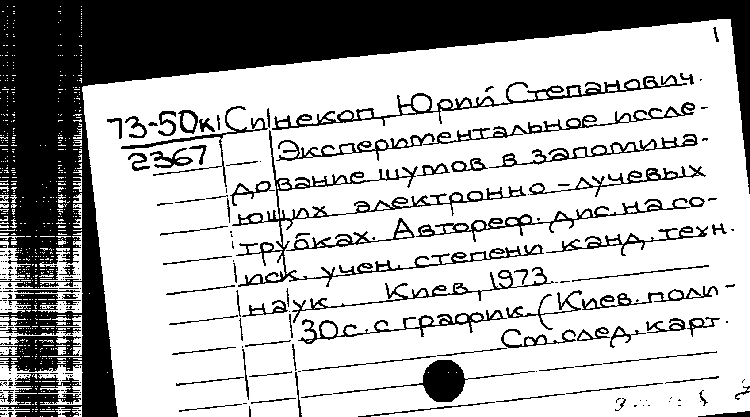 1
73-50к Синекоп, Юрий Степанович.
2367 Экспериментальное иссле-
дование шумов в запомина-
ющих электронно-лучевых
трубках. Автореф. дис. на со-
иск. учен. степени канд. техн.
наук. Киев, 1973
30 с. с график. (Киев. поли-
См. след. карт.